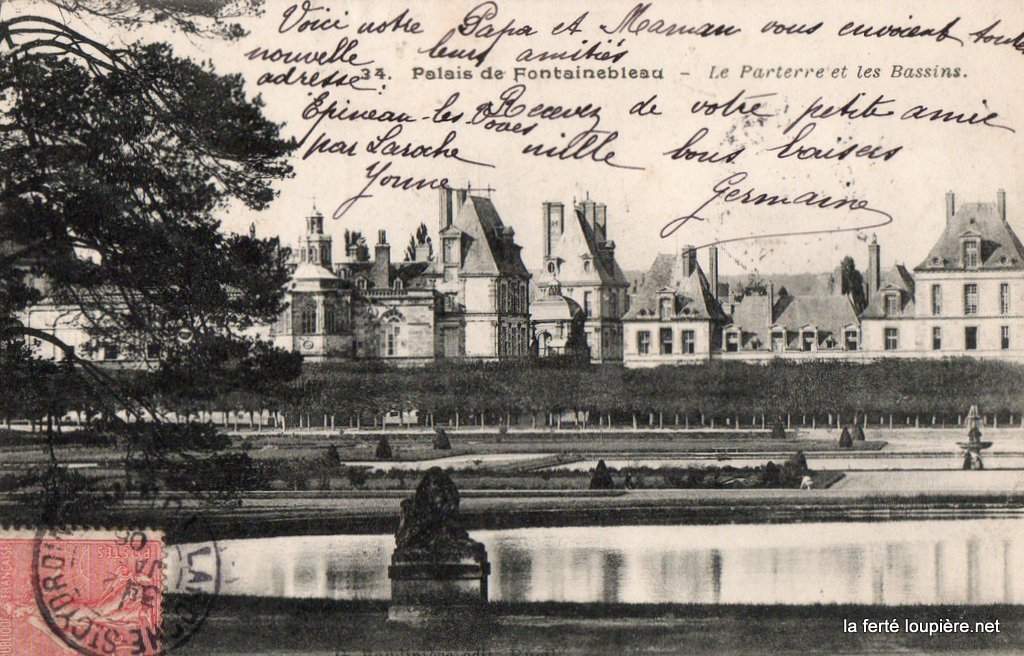 Voici notre Papa et Maman vous envoient toute
nouvelle leurs amitiés
adresse:
34. Palais de Fontainebleau – Le Parterre et les Bassins.
Epineau-les-Voves Recevez de votre petite amie
par Laroche mille bons baisers
Yonne
Germaine
LAROCHE ST CYDROINE
la ferté loupière.net